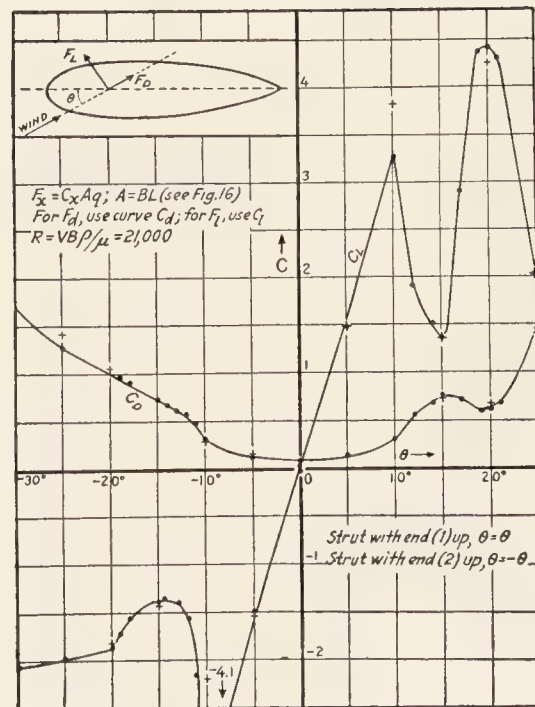 F_L
F_D
θ
WIND
F_x = C_x Aq; A = BL (see Fig. 16)
For F_d, use curve C_d; for F_l, use C_l
R = VBρ/μ = 21,000
C
C_L
C_D
4
3
2
1
-30° -20° -10° 0 10° 20°
θ
Strut with end (1) up, θ = θ
Strut with end (2) up, θ = -θ
-1
-2
-4.1